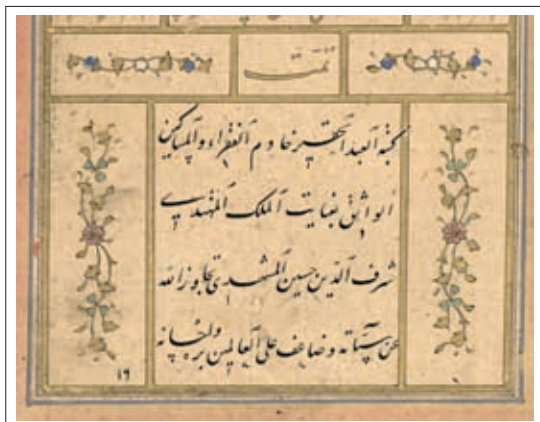 تمت
كتبه العبد الحقير خادم الفقراء و المساكين
الواثق بعنايت الملك المهتدي
شرف الدين حسين المشهدي تجاوز الله
عن سيئاته و ضاعف على العالمين بره و احسانه
١٦